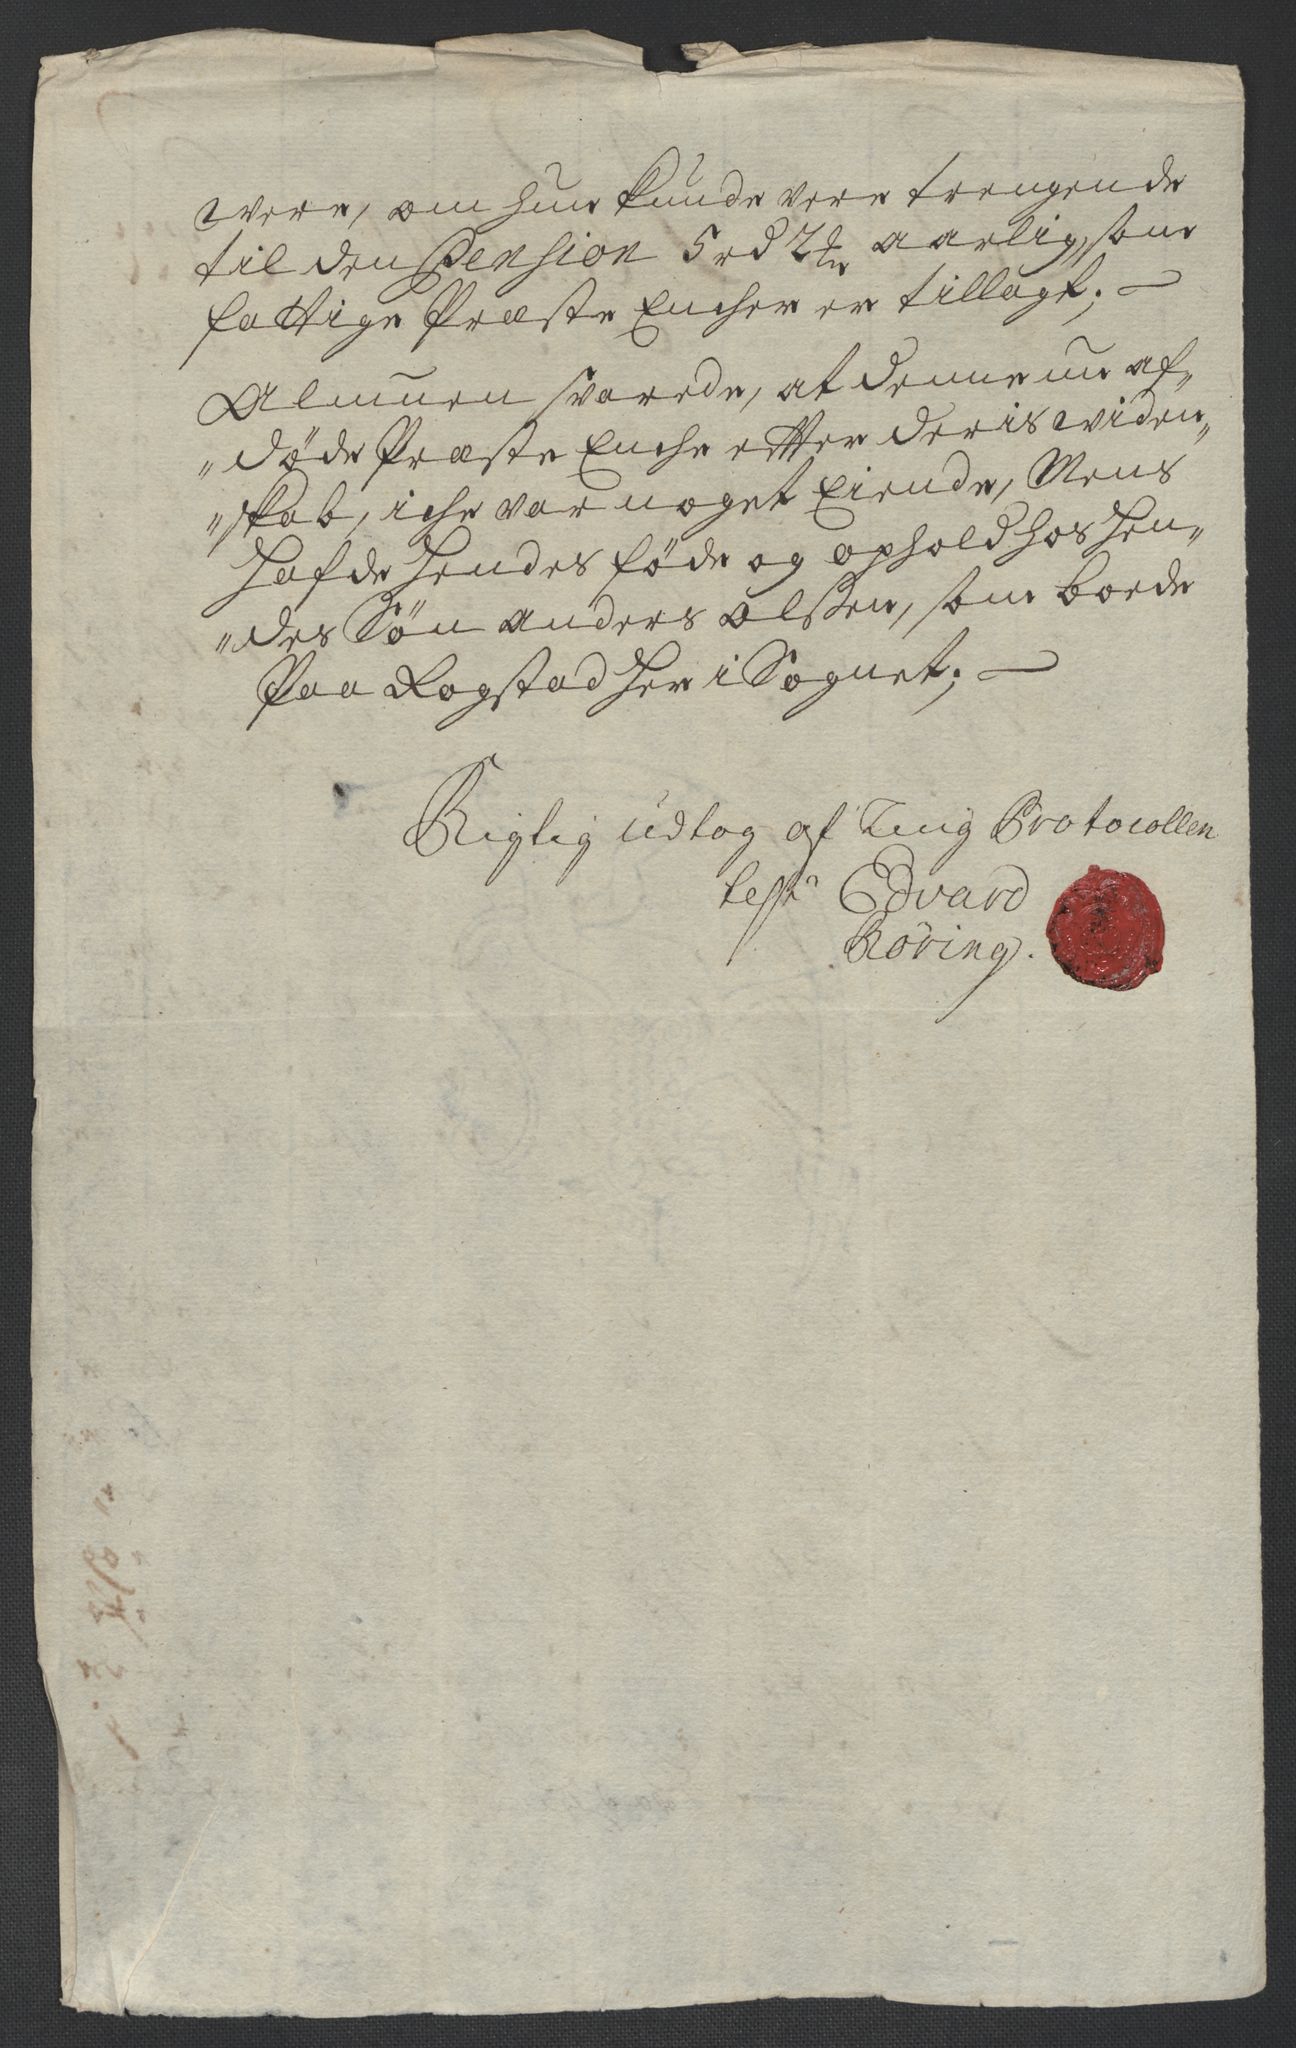 were, om hun kunde vere trengende
til den Pension 5 rd 2 aarlig, som
fattige Præste Encher er tillagt; —
Almuen svarede, at denne nu af„
„døde Præste Enche etter deris widen„
„skab, iche var noget Eiende, Mens
hafde hendes føde og ophold hos hen„
„des Søn Anders Olssen, som boede
Paa Rogstad her i Sognet; —
Rigtig udtog af Ting Protocollen
test: Edvard
Röring.